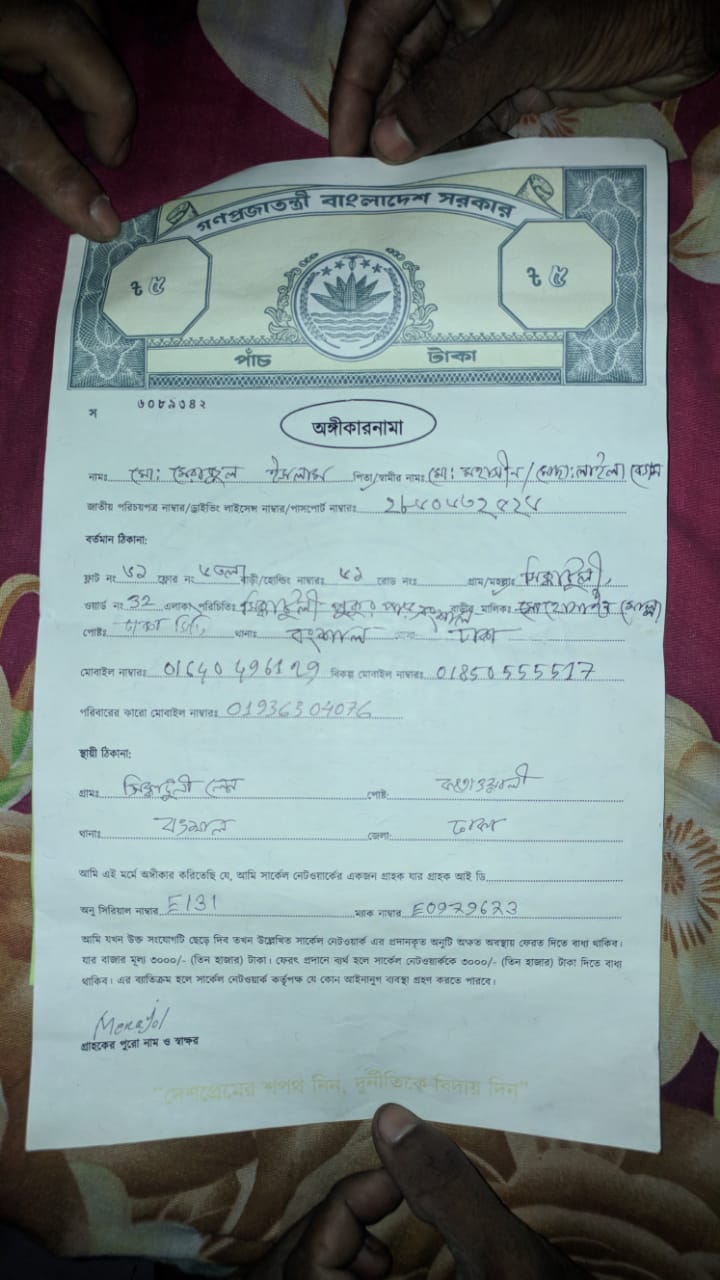 গণপ্রজাতন্ত্রী বাংলাদেশ সরকার
৳ ৫ ৳ ৫
পাঁচ টাকা
স ৬০৮৯৩৪২
অঙ্গীকারনামা
নামঃ মো: মেরাজুল ইসলাম পিতা/স্বামীর নামঃ মো: মহাসীন / মোছা: লাইলা বেগম
জাতীয় পরিচয়পত্র নাম্বার/ড্রাইভিং লাইসেন্স নাম্বার/পাসপোর্ট নাম্বারঃ
বর্তমান ঠিকানা:
ফ্লাট নং ফ্লোর নং ৫ তলা বাড়ী/হোল্ডিং নাম্বারঃ ৫১ রোড নংঃ গ্রাম/মহল্লাঃ সিক্কাটুলী,
ওয়ার্ড নং 32 এলাকা পরিচিতিঃ সিক্কাটুলী পুকুর পাড় বংশাল বাড়ীর মালিকঃ
পোষ্টঃ ঢাকা থানাঃ বংশাল ঢাকা
মোবাইল নাম্বারঃ 01640 496129 বিকল্প মোবাইল নাম্বারঃ 01850555517
পরিবারের কারো মোবাইল নাম্বারঃ 01936304076
স্থায়ী ঠিকানা:
গ্রামঃ সিক্কাটুলী লেন পোষ্ট:
থানাঃ বংশাল জেলা: ঢাকা
আমি এই মর্মে অঙ্গীকার করিতেছি যে, আমি সার্কেল নেটওয়ার্কের একজন গ্রাহক যার গ্রাহক আই ডি
অনু সিরিয়াল নাম্বার E131 ম্যাক নাম্বার E0979673
আমি যখন উক্ত সংযোগটি ছেড়ে দিব তখন উল্লেখিত সার্কেল নেটওয়ার্ক এর প্রদানকৃত অনুটি অক্ষত অবস্থায় ফেরত দিতে বাধ্য থাকিব।
যার বাজার মূল্য ৩০০০/- (তিন হাজার) টাকা। ফেরৎ প্রদানে ব্যর্থ হলে সার্কেল নেটওয়ার্ককে ৩০০০/- (তিন হাজার) টাকা দিতে বাধ্য
থাকিব। এর ব্যতিক্রম হলে সার্কেল নেটওয়ার্ক কর্তৃপক্ষ যে কোন আইনানুগ ব্যবস্থা গ্রহণ করতে পারবে।
Merajol
গ্রাহকের পুরো নাম ও স্বাক্ষর
"দেশপ্রেমের শপথ নিন, দুর্নীতিকে বিদায় দিন"